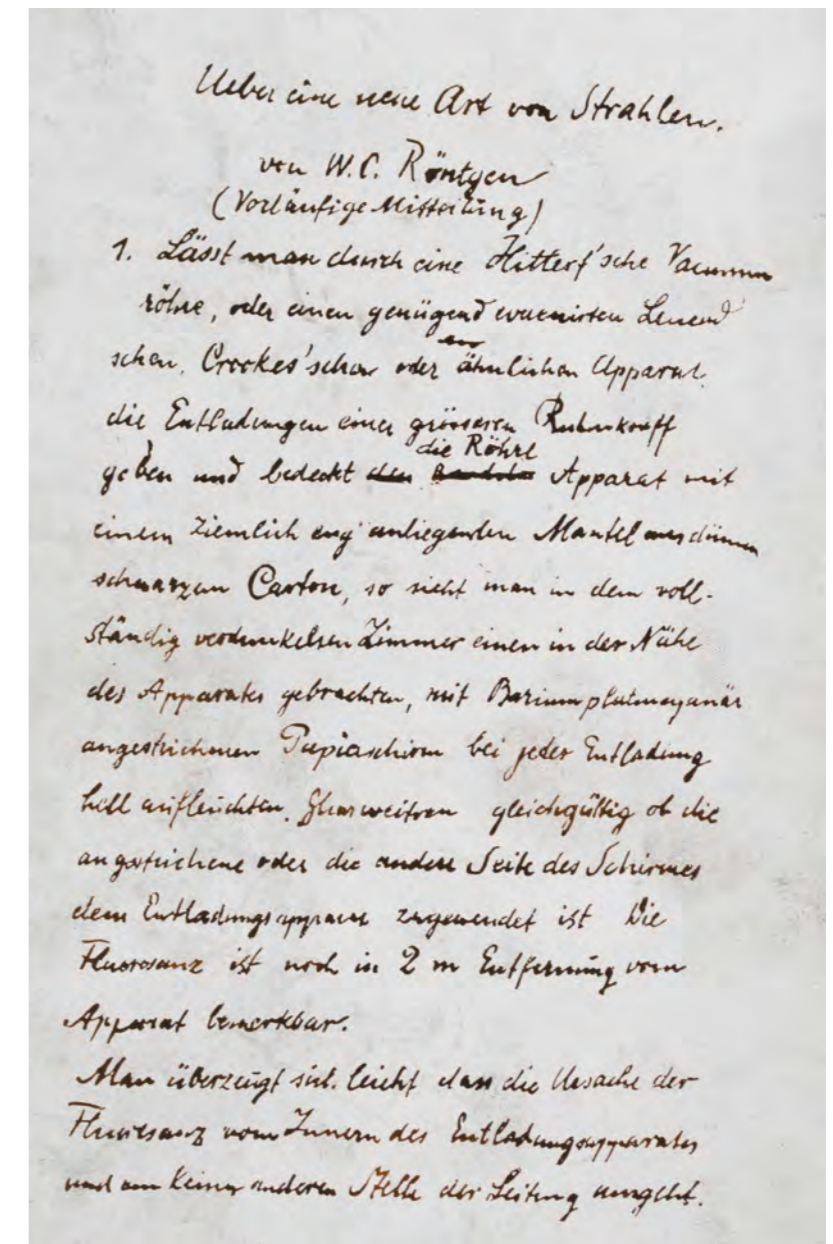 Ueber eine neue Art von Strahlen.
von W.C. Röntgen
(Vorläufige Mitteilung)
1. Lässt man durch eine Hittorf'sche Vacuum
röhre, oder einen genügend evacuirten Lenard
schen, Crookes'schen oder ähnlichen Apparat
die Entladungen eines grösseren Ruhmkorff
gehen und bedeckt die Röhre Apparat mit
einem ziemlich eng anliegenden Mantel aus dünnem
schwarzem Carton, so sieht man in dem voll-
ständig verdunkelten Zimmer einen in der Nähe
des Apparates gebrachten, mit Bariumplatincyanür
angestrichenen Papierschirm bei jeder Entladung
hell aufleuchten, gleichgültig ob die
angestrichene oder die andere Seite des Schirmes
dem Entladungsapparat zugewendet ist Die
Fluorescenz ist noch in 2 m Entfernung vom
Apparat bemerkbar.
Man überzeugt sich leicht dass die Ursache der
Fluorescenz vom Innern des Entladungsapparates
und von keiner anderen Stelle der Leitung ausgeht.